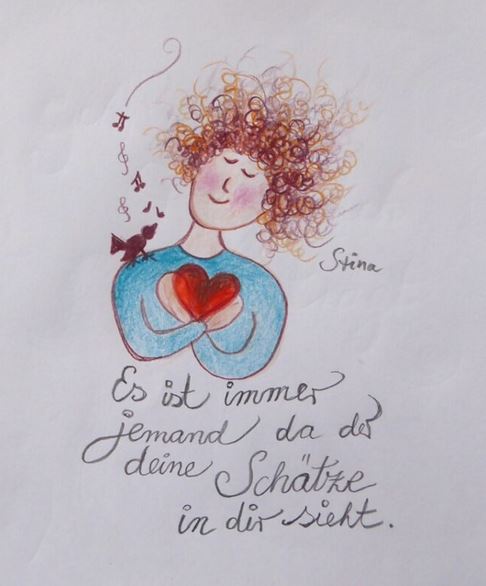 Stina
Es ist immer
jemand da der
deine Schätze
in dir sieht.